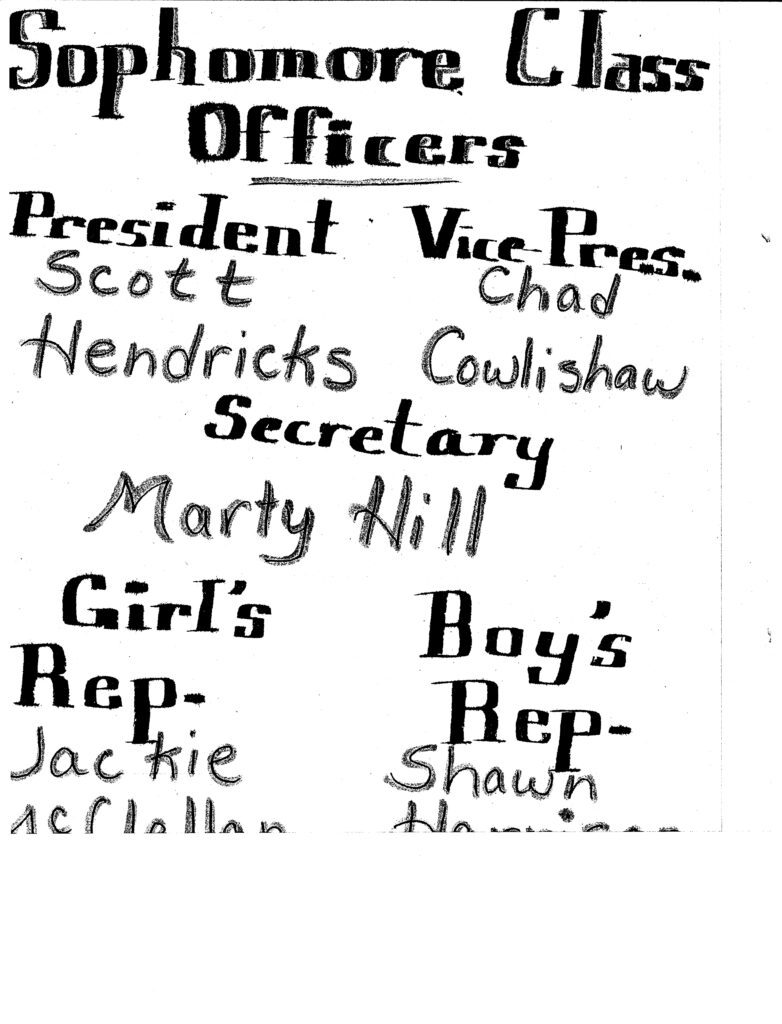 Sophomore Class
Officers
President
Scott
Hendricks
Vice-Pres.
Chad
Cowlishaw
Secretary
Marty Hill
Girl's
Rep-
Jackie
McClellan
Boy's
Rep-
Shawn
Harrison